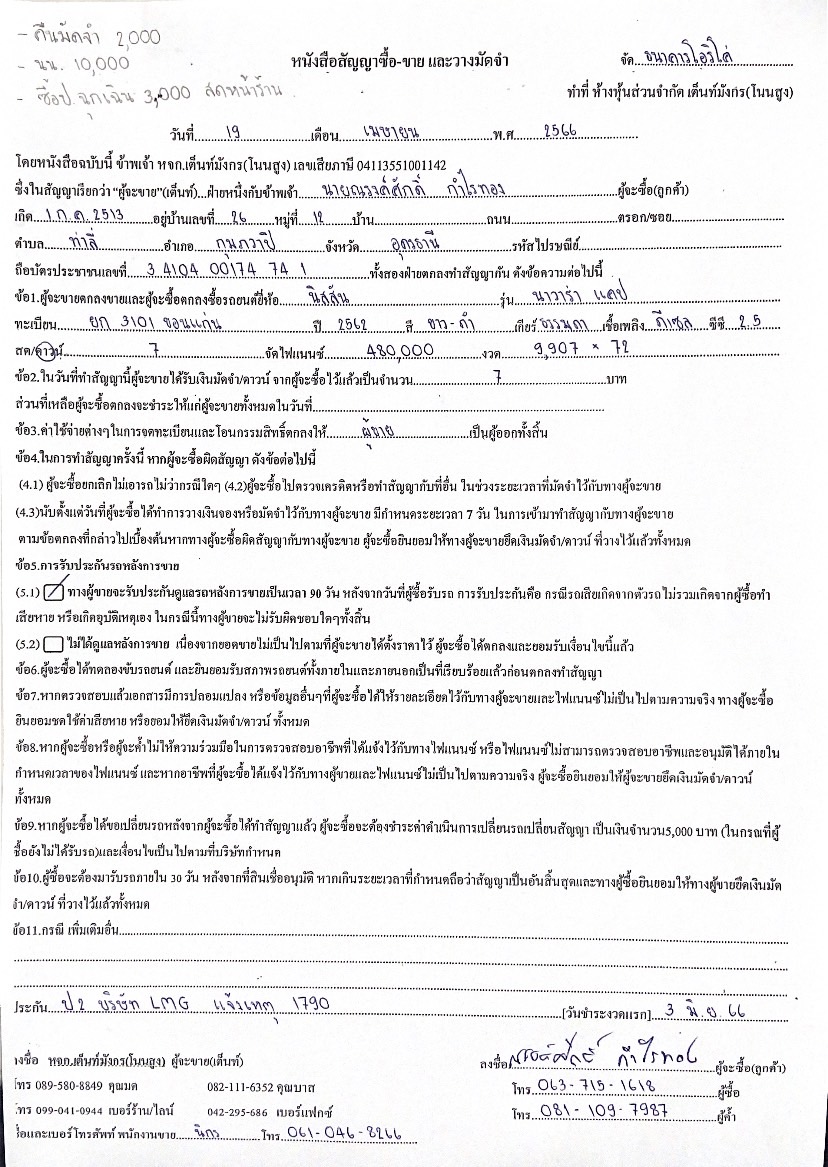 - คืนมัดจำ 2,000
- นน. 10,000
- ซื้อป. ฉุกเฉิน 3,000 สดหน้าร้าน
หนังสือสัญญาซื้อ-ขาย และวางมัดจำ
จัด...ธนาคารไอริโค่...
ทำที่ ห้างหุ้นส่วนจำกัด เต็นท์มังกร(โนนสูง)
วันที่...19...เดือน...เมษายน...พ.ศ...2566...
โดยหนังสือฉบับนี้ ข้าพเจ้า หจก.เต็นท์มังกร(โนนสูง) เลขเสียภาษี 04113551001142
ซึ่งในสัญญาเรียกว่า "ผู้จะขาย"(เต็นท์)...ฝ่ายหนึ่งกับข้าพเจ้า...นายณรงค์ศักดิ์ กำไรทอง...ผู้จะซื้อ(ลูกค้า)
เกิด...1 ก.ค. 2513...อยู่บ้านเลขที่...26...หมู่ที่...12...บ้าน...ถนน...ตรอก/ซอย...
ตำบล...ท่าลี่...อำเภอ...กุมภวาปี...จังหวัด...อุดรธานี...รหัสไปรษณีย์...
ถือบัตรประชาชนเลขที่...3 4104 00174 74 1...ทั้งสองฝ่ายตกลงทำสัญญากัน ดังข้อความต่อไปนี้
ข้อ1.ผู้จะขายตกลงขายและผู้จะซื้อตกลงซื้อรถยนต์ยี่ห้อ...นิสสัน...รุ่น...นาวาร่า แคป...
ทะเบียน...ยก 3101 ขอนแก่น...ปี...2562...สี...ขาว-ดำ...เกียร์...ธรรมดา...เชื้อเพลิง...ดีเซล...ซีซี...2.5...
สด/ดาวน์...7...จัดไฟแนนซ์...480,000...งวด...9,907 × 72...
ข้อ2.ในวันที่ทำสัญญานี้ผู้จะขายได้รับเงินมัดจำ/ดาวน์ จากผู้จะซื้อไว้แล้วเป็นจำนวน...7...บาท
ส่วนที่เหลือผู้จะซื้อตกลงจะชำระให้แก่ผู้จะขายทั้งหมดในวันที่...
ข้อ3.ค่าใช้จ่ายต่างๆในการจดทะเบียนและโอนกรรมสิทธิ์ตกลงให้...ผู้ขาย...เป็นผู้ออกทั้งสิ้น
ข้อ4.ในการทำสัญญาครั้งนี้ หากผู้จะซื้อผิดสัญญา ดังข้อต่อไปนี้
(4.1) ผู้จะซื้อยกเลิกไม่เอารถไม่ว่ากรณีใดๆ (4.2)ผู้จะซื้อไปตรวจเครดิตหรือทำสัญญากับที่อื่น ในช่วงระยะเวลาที่มัดจำไว้กับทางผู้จะขาย
(4.3)นับตั้งแต่วันที่ผู้จะซื้อได้ทำการวางเงินจองหรือมัดจำไว้กับทางผู้จะขาย มีกำหนดระยะเวลา 7 วัน ในการเข้ามาทำสัญญากับทางผู้จะขาย
ตามข้อตกลงที่กล่าวไปเบื้องต้นหากทางผู้จะซื้อผิดสัญญากับทางผู้จะขาย ผู้จะซื้อยินยอมให้ทางผู้จะขายยึดเงินมัดจำ/ดาวน์ ที่วางไว้แล้วทั้งหมด
ข้อ5.การรับประกันรถหลังการขาย
(5.1) ทางผู้ขายจะรับประกันดูแลรถหลังการขายเป็นเวลา 90 วัน หลังจากวันที่ผู้ซื้อรับรถ การรับประกันคือ กรณีรถเสียเกิดจากตัวรถไม่รวมเกิดจากผู้ซื้อทำ
เสียหาย หรือเกิดอุบัติเหตุเอง ในกรณีนี้ทางผู้ขายจะไม่รับผิดชอบใดๆทั้งสิ้น
(5.2) ไม่ได้ดูแลหลังการขาย เนื่องจากยอดขายไม่เป็นไปตามที่ผู้จะขายได้ตั้งราคาไว้ ผู้จะซื้อได้ตกลงและยอมรับเงื่อนไขนี้แล้ว
ข้อ6.ผู้จะซื้อได้ทดลองขับรถยนต์ และยินยอมรับสภาพรถยนต์ทั้งภายในและภายนอกเป็นที่เรียบร้อยแล้วก่อนตกลงทำสัญญา
ข้อ7.หากตรวจสอบแล้วเอกสารมีการปลอมแปลง หรือข้อมูลอื่นๆที่ผู้จะซื้อได้ให้รายละเอียดไว้กับทางผู้จะขายและไฟแนนซ์ไม่เป็นไปตามความจริง ทางผู้จะซื้อ
ยินยอมชดใช้ค่าเสียหาย หรือยอมให้ยึดเงินมัดจำ/ดาวน์ ทั้งหมด
ข้อ8.หากผู้จะซื้อหรือผู้จะค้ำไม่ให้ความร่วมมือในการตรวจสอบอาชีพที่ได้แจ้งไว้กับทางไฟแนนซ์ หรือไฟแนนซ์ไม่สามารถตรวจสอบอาชีพและอนุมัติได้ภายใน
กำหนดเวลาของไฟแนนซ์ และหากอาชีพที่ผู้จะซื้อได้แจ้งไว้กับทางผู้ขายและไฟแนนซ์ไม่เป็นไปตามความจริง ผู้จะซื้อยินยอมให้ผู้จะขายยึดเงินมัดจำ/ดาวน์
ทั้งหมด
ข้อ9.หากผู้จะซื้อได้ขอเปลี่ยนรถหลังจากผู้จะซื้อได้ทำสัญญาแล้ว ผู้จะซื้อจะต้องชำระค่าดำเนินการเปลี่ยนรถเปลี่ยนสัญญา เป็นเงินจำนวน5,000 บาท (ในกรณที่ผู้
ซื้อยังไม่ได้รับรถ)และเงื่อนไขเป็นไปตามที่บริษัทกำหนด
ข้อ10.ผู้ซื้อจะต้องมารับรถภายใน 30 วัน หลังจากที่สินเชื่ออนุมัติ หากเกินระยะเวลาที่กำหนดถือว่าสัญญาเป็นอันสิ้นสุดและทางผู้ซื้อยินยอมให้ทางผู้ขายยึดเงินมัด
จำ/ดาวน์ ที่วางไว้แล้วทั้งหมด
ข้อ11.กรณี เพิ่มเติมอื่น...
ประกัน...ป.2 บริษัท LMG แจ้งเหตุ 1790...[วันชำระงวดแรก]...3 มิ.ย. 66...
งชื่อ หจก.เต็นท์มังกร(โนนสูง) ผู้จะขาย(เต็นท์)
ลงชื่อ ณรงค์ศักดิ์ กำไรทอง ผู้จะซื้อ(ลูกค้า)
โทร 089-580-8849 คุณมด 082-111-6352 คุณบาส
โทร...063-715-1618...ผู้ซื้อ
โทร 099-041-0944 เบอร์ร้าน/ไลน์ 042-295-686 เบอร์แฟกซ์
โทร...081-109-7987...ผู้ค้ำ
ชื่อและเบอร์โทรศัพท์ พนักงานขาย...นิกร...โทร...061-046-8266...